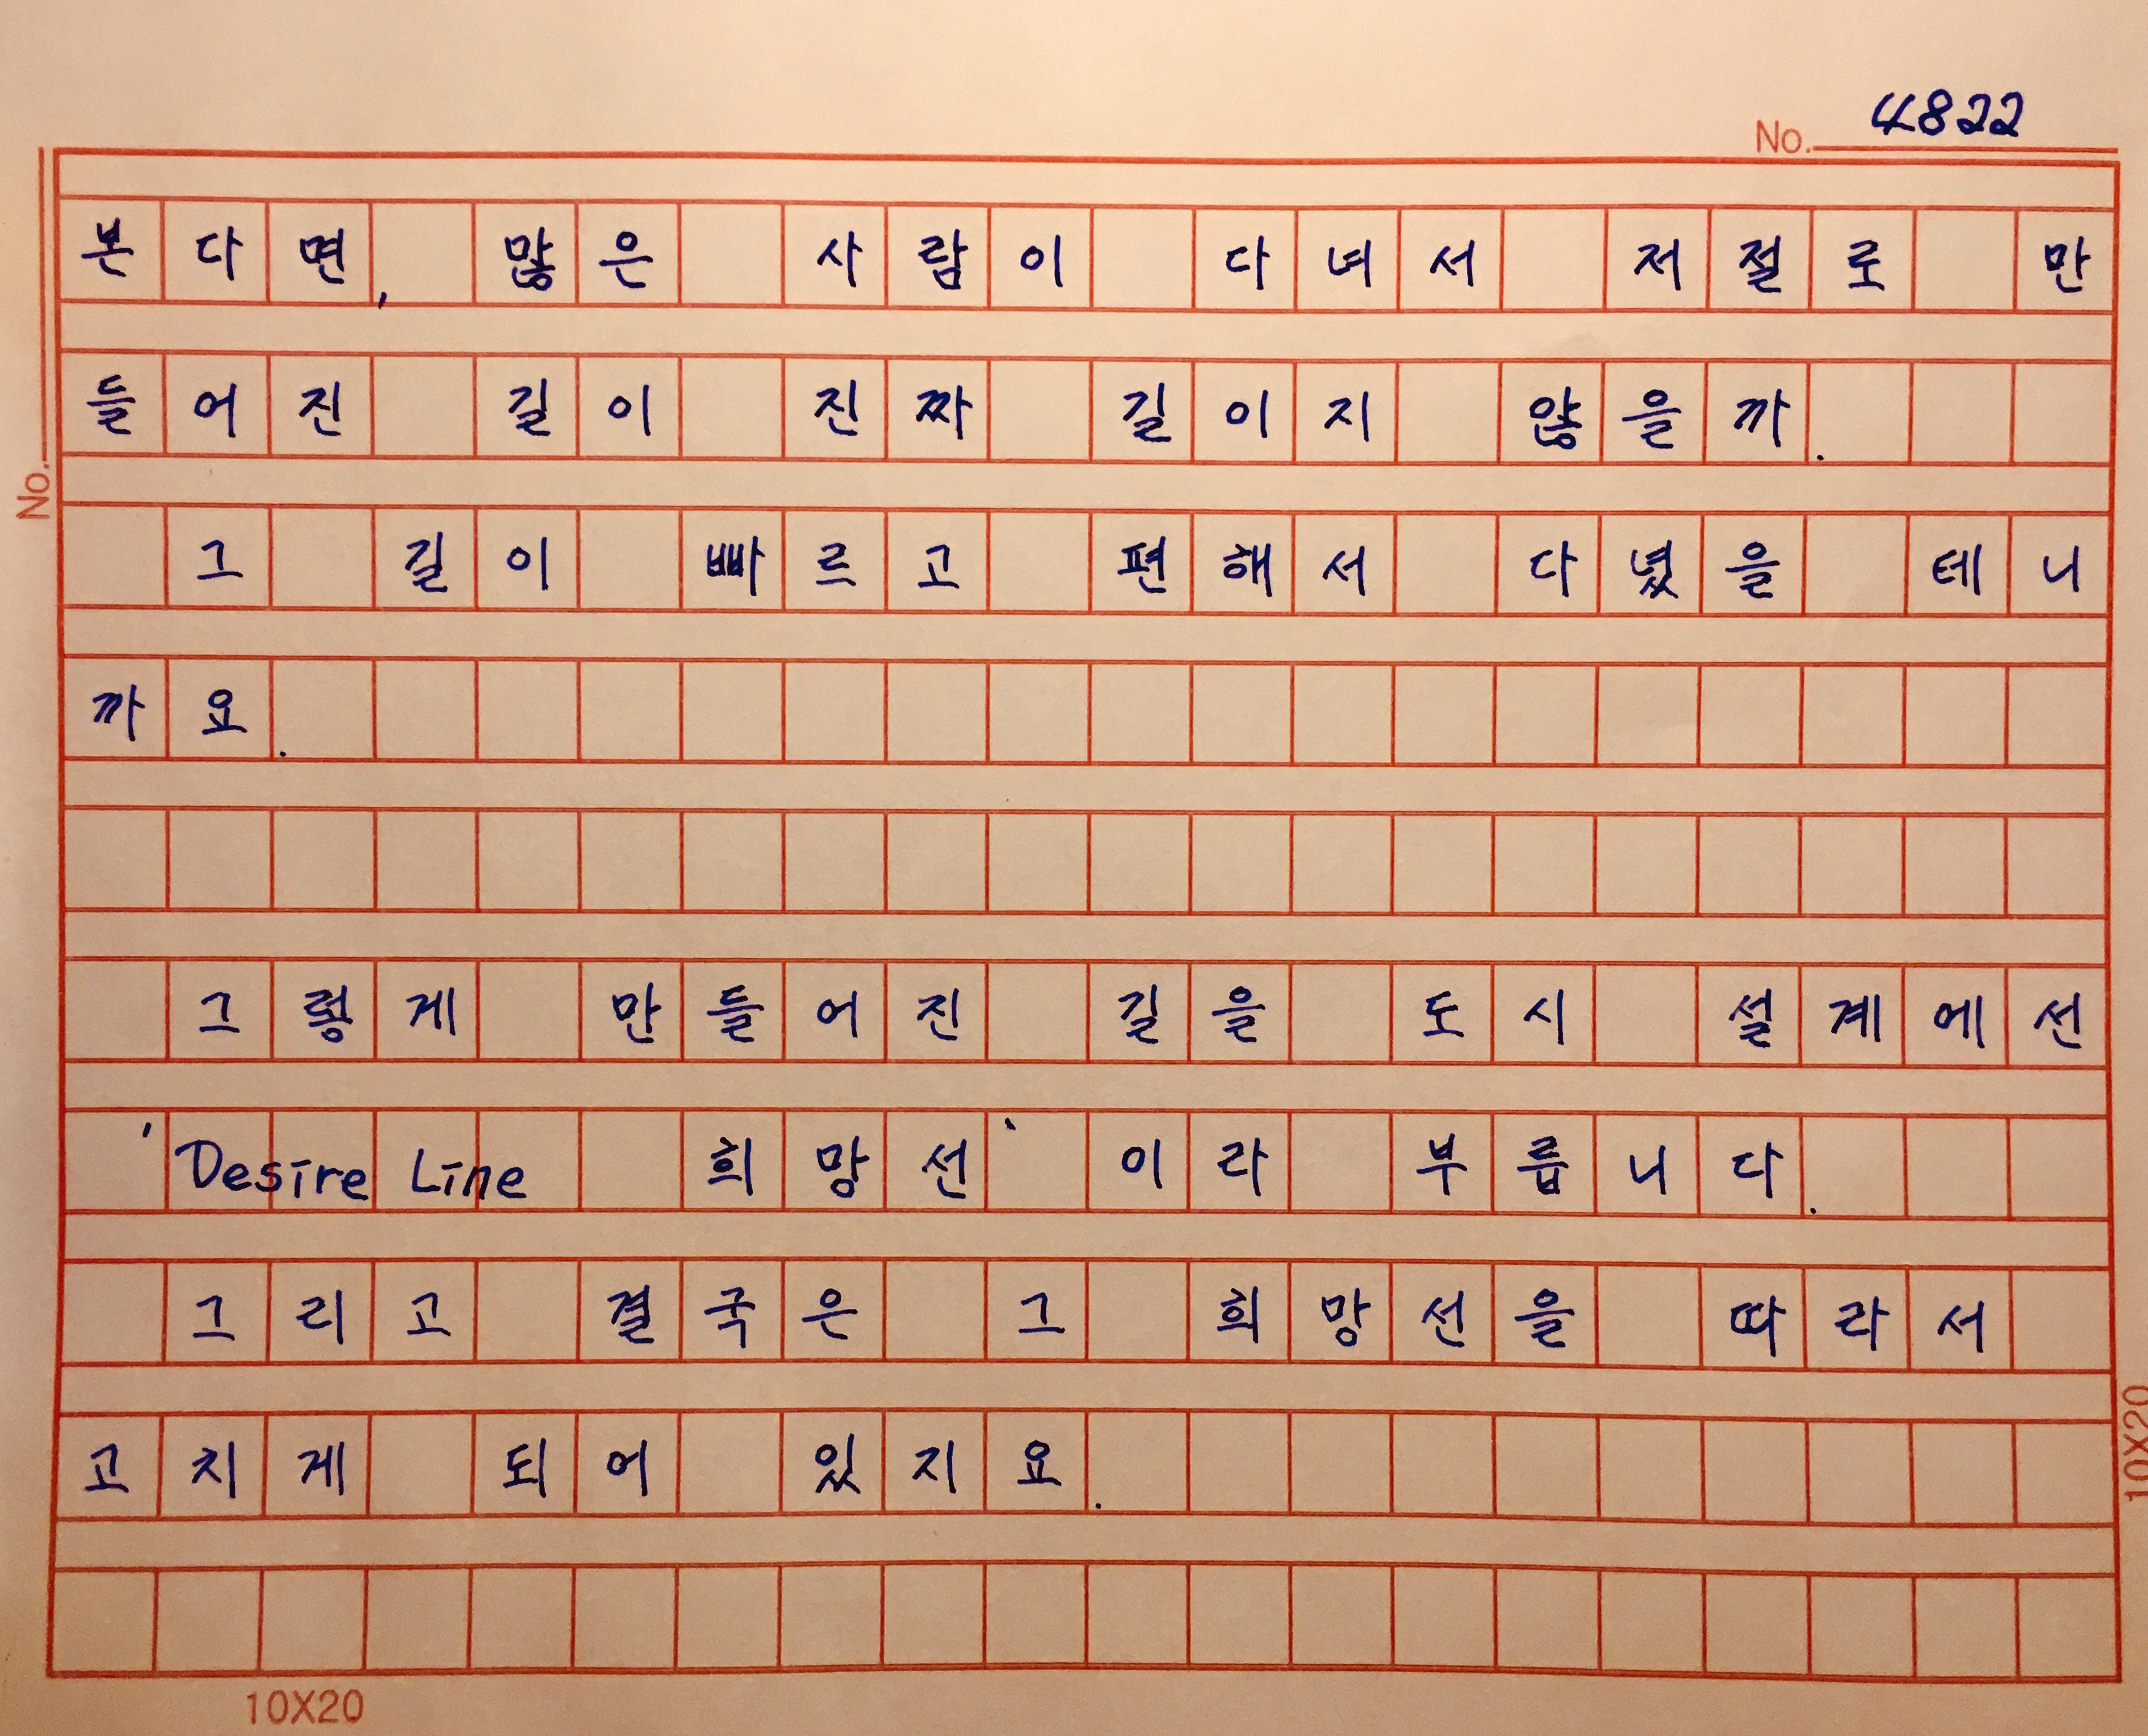 No. 4822
본다면, 많은 사람이 다녀서 저절로 만
들어진 길이 진짜 길이지 않을까.
No.
그 길이 빠르고 편해서 다녔을 테니
까요.
그렇게 만들어진 길을 도시 설계에선
'Desire Line 희망선'이라 부릅니다.
그리고 결국은 그 희망선을 따라서
고치게 되어 있지요.
10X20
10X20